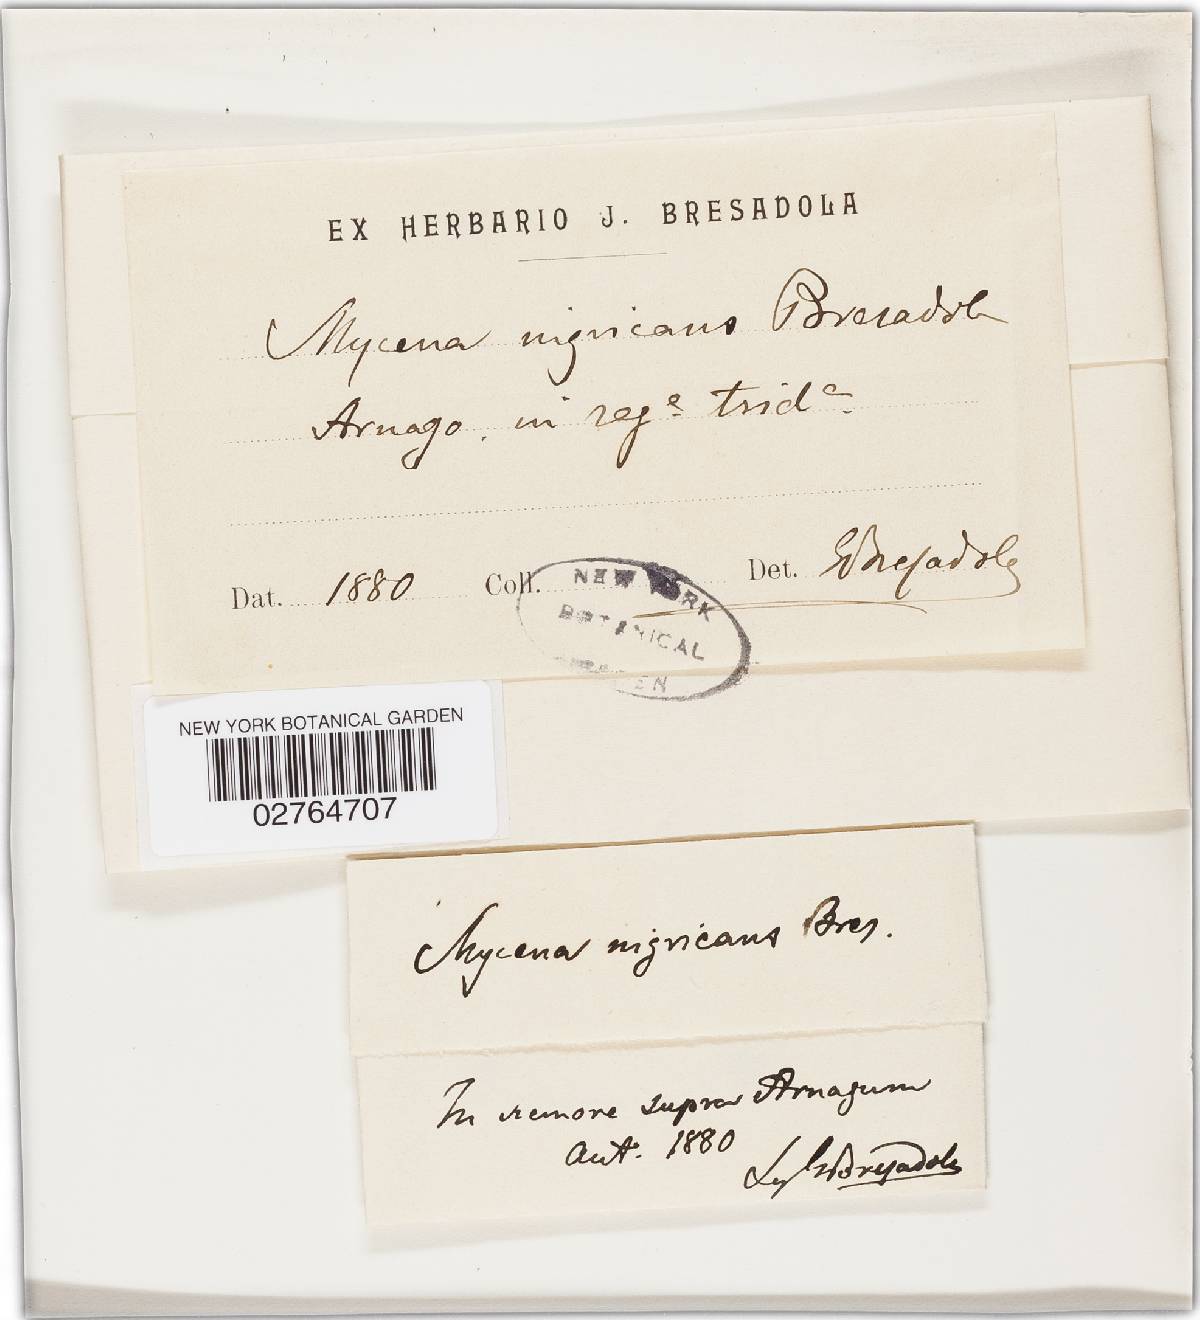 EX HERBARIO J. BRESADOLA
Mycena nigricans Bresadola
Arnago. in rege tride.
Dat. 1880 Coll. Det. GBresadola
NEW YORK
BOTANICAL
GARDEN
NEW YORK BOTANICAL GARDEN
02764707
Mycena nigricans Bres.
In nemore supra Arnagum
aut. 1880
Leg GBresadola